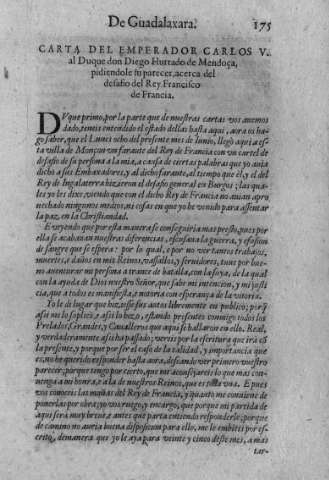 De Guadalaxara. 175
CARTA DEL EMPERADOR CARLOS V.
al Duque don Diego Hurtado de Mendoça,
pidiendole su parecer, acerca del
desafio del Rey Francisco
de Francia.
DVque primo, por la parte que de nuestras cartas vos auemos
dado, temeis entendido el estado dellas hasta aqui, aora os ha-
go saber, que el Lunes ocho del presente mes de Iunio, llegò aqui a es-
ta villa de Monçon vn farante del Rey de Francia con vn cartel de
desafio de su persona a la mia, a causa de ciertas palabras que yo auia
dicho a sus Embaxadores, y al dicho farante, al tiempo que èl, y el del
Rey de Ingalaterra hizieron el desafio general en Burgos; las qua-
les yo les dixe, viendo que con el dicho Rey de Francia no auian apro
uechado ningunos medios, ni cosas en que yo he venido para assentar
la paz, en la Christiandad.
E viendo que por esta manera se conseguiria mas presto, pues por
ella se acaban nuestras diferencias, y escusar la guerra, y efusion
de sangre que se espera: por lo qual, e por no ver tantos trabajos,
muertes, e daños en mis Reinos, vassallos, y seruidores, tuue por bue-
no auenturar mi persona a trance de batalla, con la suya, de la qual
con la ayuda de Dios nuestro Señor, que sabe mi intencion, y mi justi
cia, que a todos es manifiesta, e notoria con esperança de la vitoria.
Yo le di lugar que hiziesse sus autos libremente en publico; porq̃
assi me lo suplicò, e assi lo hizo, estando presentes conmigo todos los
Prelados, Grandes, y Caualleros que aqui se hallaron en ello. Real,
y verdaderamente assi ha passado; vereis por la escritura que irà cõ
la presente, y porque por ser el caso de la calidad, y importancia que
es, no he querido responder hasta aora, desseando ver primero vuestro
parecer, porque tengo por cierto, que me aconsejareis lo que mas con-
uenga a mi honra, e a la de nuestros Reinos, que es toda vna. E pues
vos conoceis las mañas del Rey de Francia, y quanto me conuiene de
ponerlas por obra; yo vos ruego, y encargo, que porque mi partida de
aqui serà muy breue, e antes que parta entiendo responderle, e porque
de camino no auria buena disposicion para ello, me lo embieis por es-
crito, de manera que yo le aya para veinte y cinco deste mes, a mas
tar-